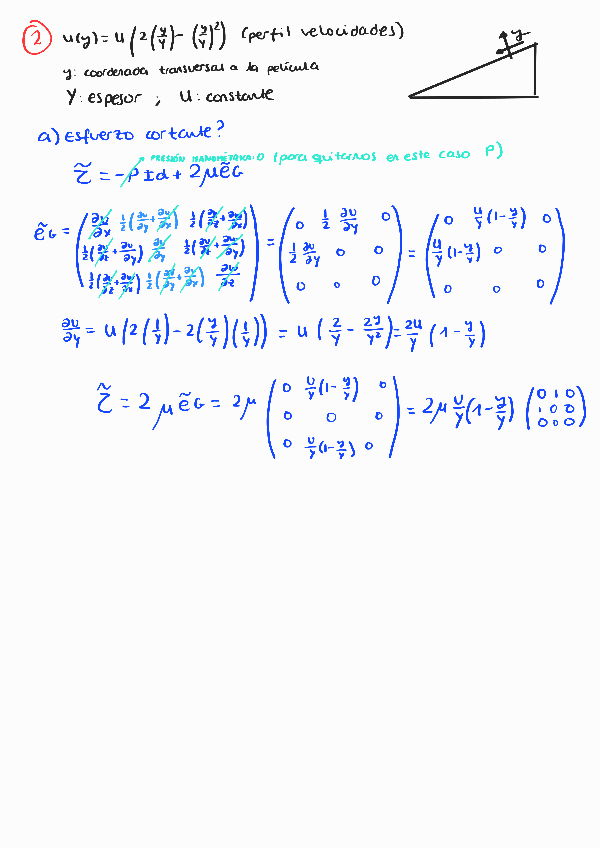 2 u(y) = U (2(y/Y) - (y/Y)²) (perfil velocidades)
y
y: coordenada transversal a la película
Y: espesor ; U: constante
a) Esfuerzo cortante?
PRESIÓN MANOMÉTRICA: 0 (para quitarnos en este caso P)
τ̃ = -P Id + 2μẽG
ẽG = ( ∂u/∂x 1/2(∂u/∂y + ∂v/∂x) 1/2(∂u/∂z + ∂w/∂x) ; 1/2(∂v/∂x + ∂u/∂y) ∂v/∂y 1/2(∂v/∂z + ∂w/∂y) ; 1/2(∂u/∂z + ∂w/∂x) 1/2(∂v/∂z + ∂w/∂y) ∂w/∂z ) = ( 0 1/2 ∂u/∂y 0 ; 1/2 ∂u/∂y 0 0 ; 0 0 0 ) = ( 0 U/Y(1-y/Y) 0 ; U/Y(1-y/Y) 0 0 ; 0 0 0 )
∂u/∂y = U (2(1/Y) - 2(y/Y)(1/Y)) = U (2/Y - 2y/Y²) = 2U/Y (1 - y/Y)
τ̃ = 2μẽG = 2μ ( 0 U/Y(1-y/Y) 0 ; 0 0 0 ; 0 U/Y(1-y/Y) 0 ) = 2μ U/Y (1-y/Y) ( 0 1 0 ; 1 0 0 ; 0 0 0 )